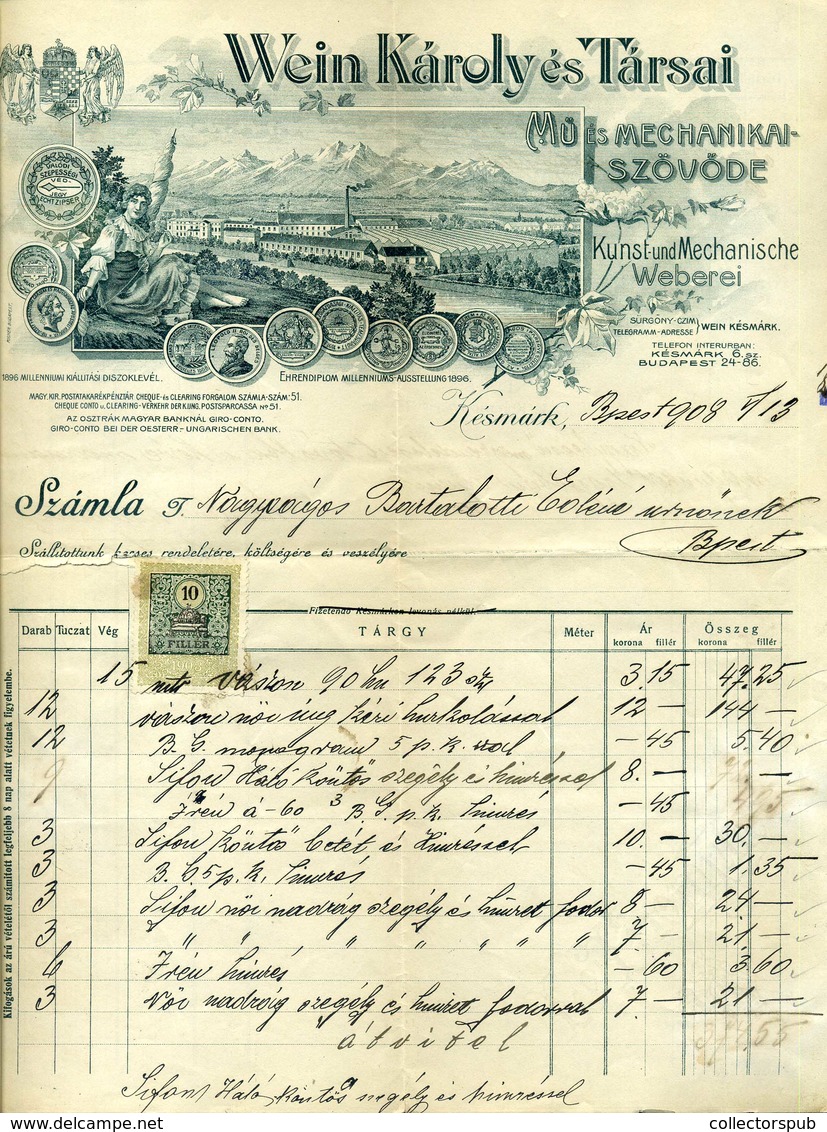 Wein Károly és Társai
MŰ ÉS MECHANIKAI-
SZÖVŐDE
VALÓDI
SZEPESSÉGI
VÉD-
JEGY
ECHT ZIPSER
Kunst- und Mechanische
Weberei
SÜRGÖNY-CZIM
TELEGRAMM-ADRESSE } WEIN KÉSMÁRK.
TELEFON INTERURBAN:
KÉSMÁRK 6. sz.
BUDAPEST 24-86.
1896 MILLENNIUMI KIÁLLITÁSI DISZOKLEVÉL.
EHRENDIPLOM MILLENNIUMS-AUSSTELLUNG 1896.
MAGY. KIR. POSTATAKARÉKPÉNZTÁR CHEQUE- ÉS CLEARING FORGALOM SZÁMLA-SZÁM: 51.
CHEQUE CONTO u. CLEARING-VERKEHR DER KUNG. POSTSPARCASSA No 51.
AZ OSZTRÁK MAGYAR BANKNÁL GIRO-CONTO.
GIRO-CONTO BEI DER OESTERR.-UNGARISCHEN BANK.
Késmárk, Bpest 908 V/13
Számla T. Nagyságos Bartalotti urnőnek
Bpest
Szállitottunk becses rendeletére, költségére és veszélyére
10
FILLÉR
Fizetendő Késmárkon levonás nélkül.
Darab Tuczat Vég TÁRGY Méter Ár Összeg
korona fillér korona fillér
15 vászon 90 123 3.15 47.25
12 vászon női ing kézi hurkolással 12 — 144 —
12 B. G. monogram 5 p. k. — 45 5.40
9 Sifon Háló köntös szegély és himzéssel 8. —
á —60 3 B. G. p. k. himzés — 45
3 Sifon köntös betét és himzéssel 10. — 30. —
3 5 p. k. himzés — 45 1.35
3 Sifon női nadrág szegély és himzet fodor 8 — 24 —
3 " " " " " " " 7 — 21 —
6 himzés — 60 3.60
3 Női nadrág szegély és himzet fodorral 7 — 21 —
átvitel
Sifon Háló köntös szegély és himzéssel
Kifogások az árú vételétől számitott legfeljebb 8 nap alatt vétetnek figyelembe.
delcampe.net
collectorspub